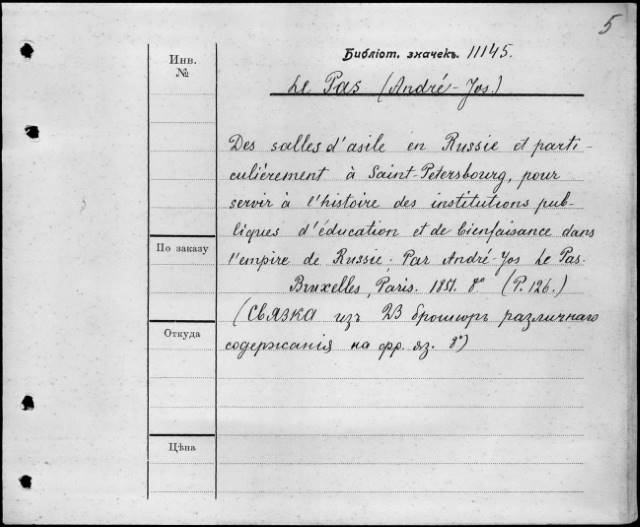 5
Библіот. значекъ 11145.
Инв.
№
Le Pas (André-Jos.)
Des salles d'asile en Russie et parti-
culièrement à Saint-Petersbourg, pour
servir à l'histoire des institutions pub-
liques d'éducation et de bienfaisance dans
По заказу
l'empire de Russie. Par André-Jos Le Pas.
Bruxelles, Paris. 1851. 8° (P. 126.)
(Связка изъ 23 брошюръ различнаго
Откуда
содержанія на фр. яз. 8°)
Цѣна